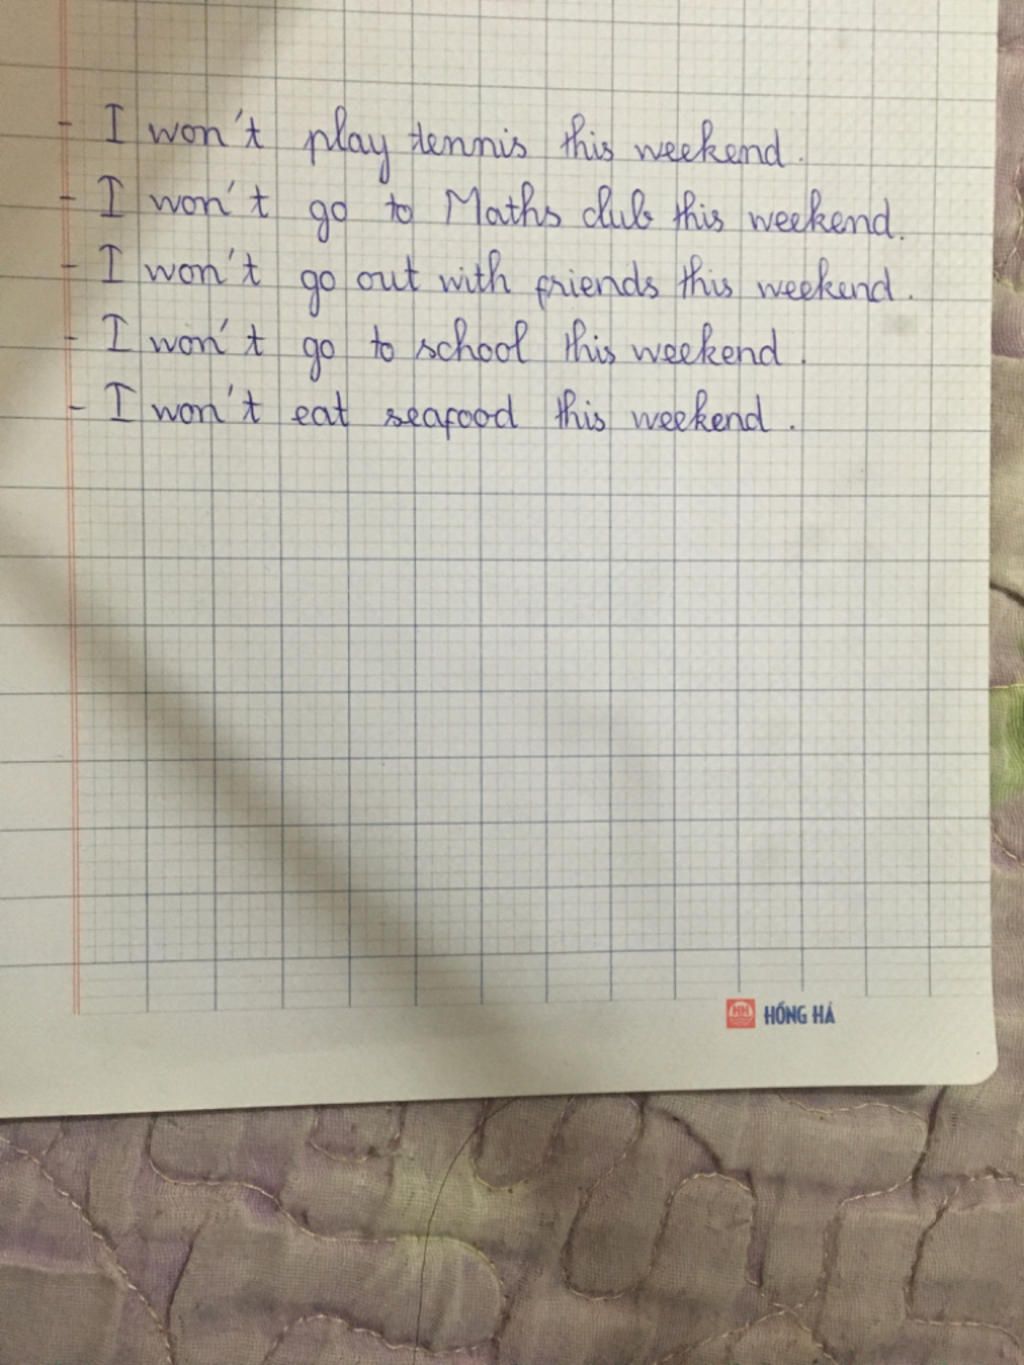 - I won't play tennis this weekend.
- I won't go to Maths club this weekend.
- I won't go out with friends this weekend.
- I won't go to school this weekend.
- I won't eat seafood this weekend.
HH HỒNG HÀ